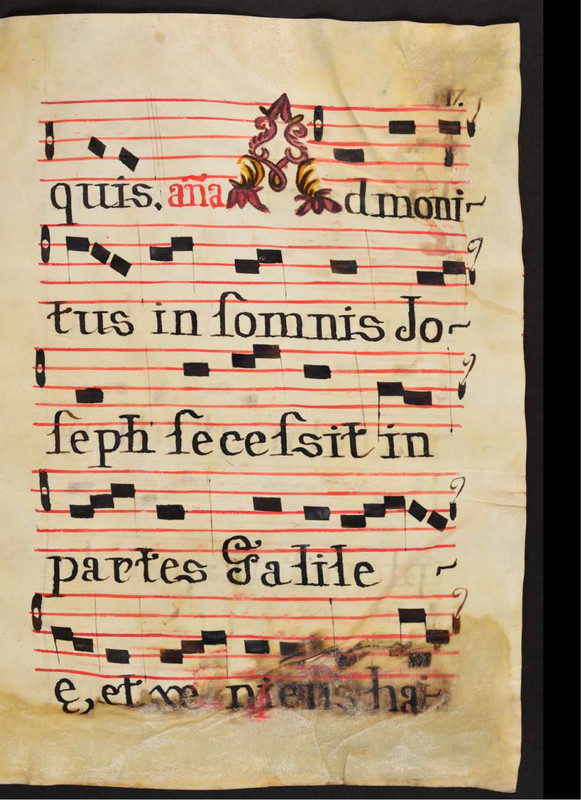 17.
quis. aña Admoni-
tus in ſomnis Jo-
ſeph ſeceſsit in
partes Galile -
e, et ve niens ha-